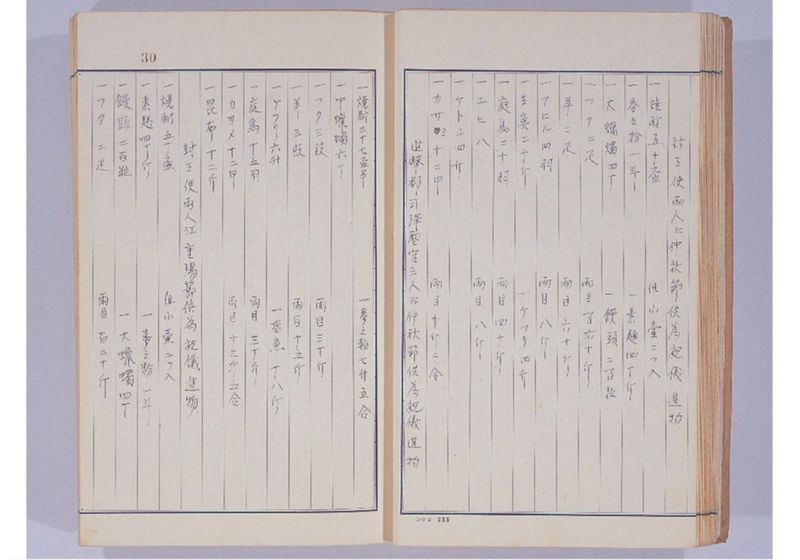 封王使両人江仲秋節供為祝儀進物
一焼酎五十盃 但小壷二ツ入
一麥之粉一斗 一素麺四十斤
一大蠟燭四丁 一饅頭二百粒
一フタ二疋 両目百六十斤
一羊二疋 両目六十斤
一アヒル四羽 両目八斤
一生魚二十斤 一ケフリ四斤
一庭鳥二十羽 両目四十斤
一エヒ八 両目八斤
一ケトン四斤
一カサメ十二 両目十斤二合
三人江仲秋節供為祝儀進物
一焼酎二十七盃 一麥之粉七升五合
一中蠟燭六丁
一フタ三 両目三十斤
一羊三 両目十五斤
一ケフリ六斤 一塩魚十八斤
一庭鳥十五羽 両目三十斤
一カサメ十二 両目十三斤五合
一昆布十二斤
封王使両人江重陽節供為祝儀進物
一焼酎五十盃 但小壷二ツ入
一素麺四十斤 一麥之粉一斗
一饅頭二百粒 一大蠟燭四丁
一フタ二疋 両目百二十斤
30
255